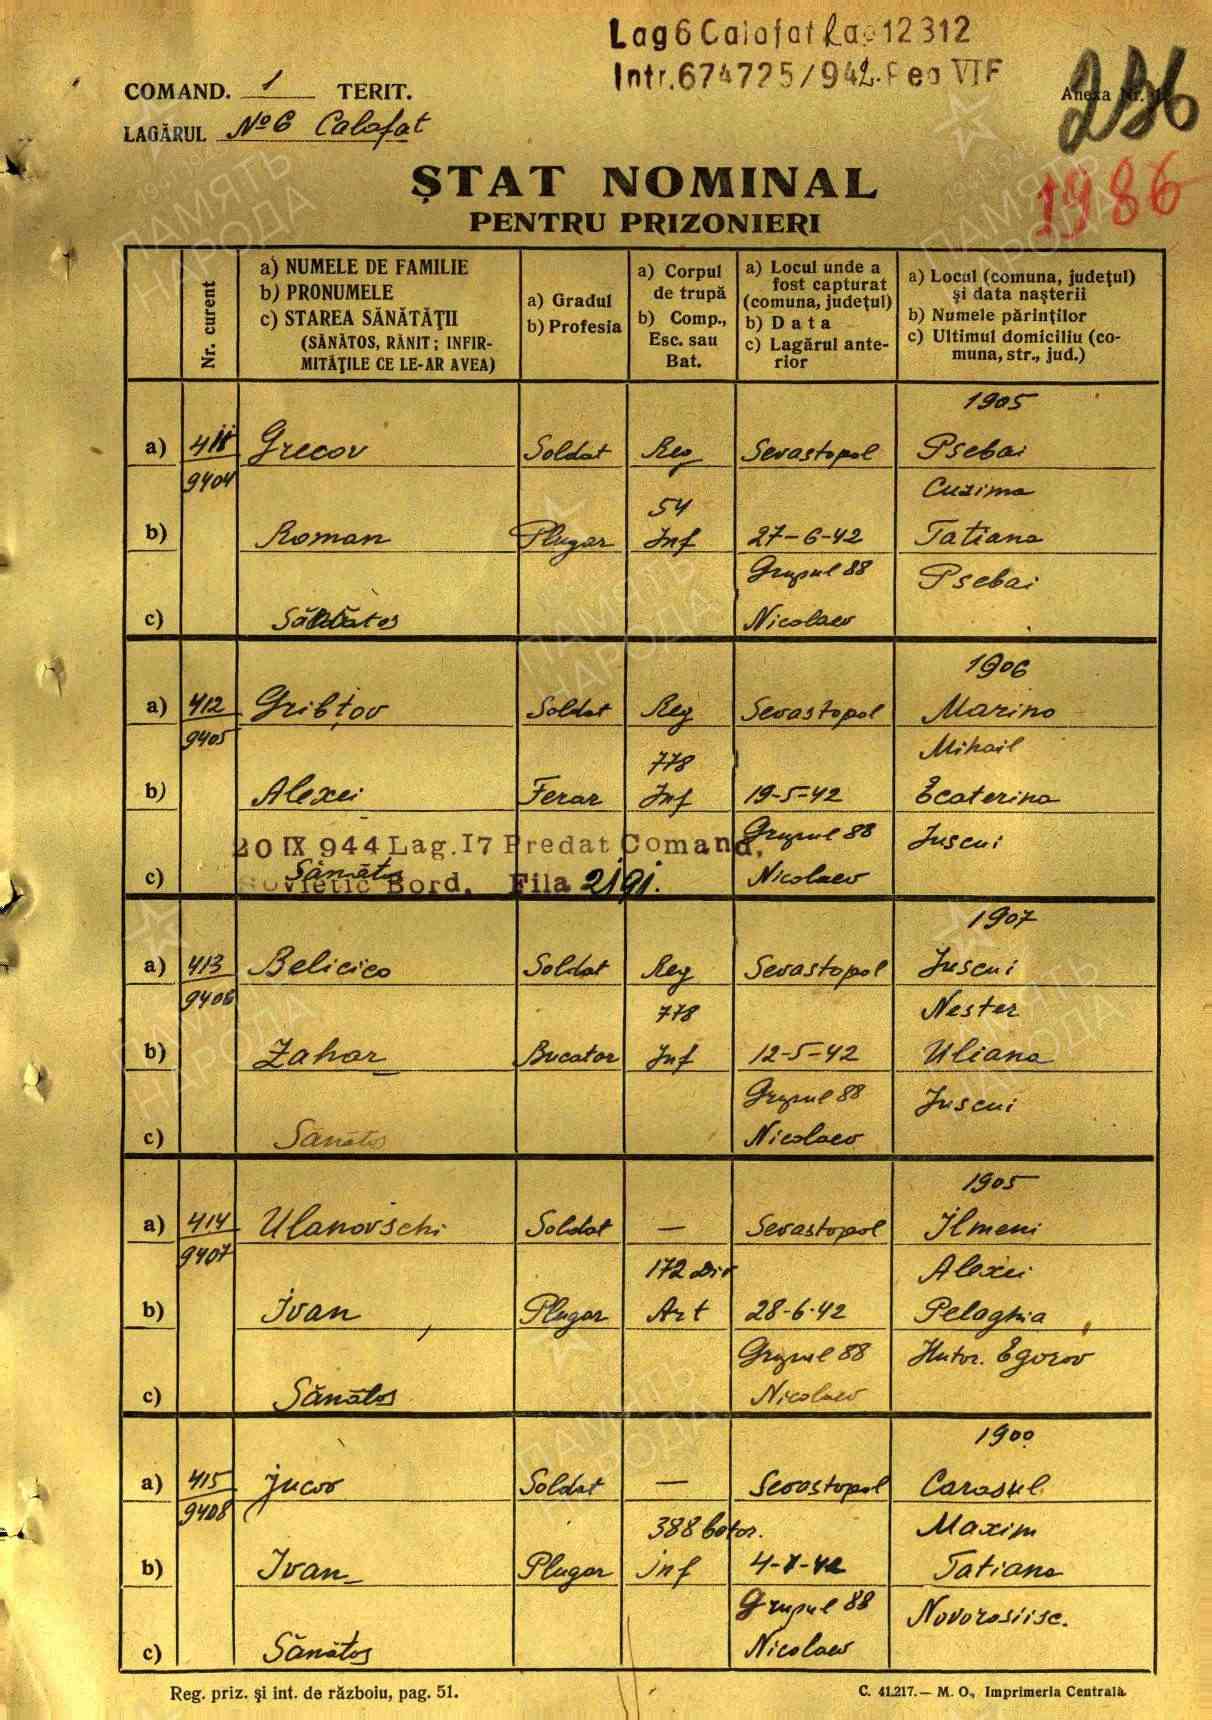 Lag 6 Calafat Lag 12 312
Intr. 674725/942. Reg VTF
COMAND. 1 TERIT.
Anexa Nr.
236
LAGĂRUL No 6 Calafat
1986
ȘTAT NOMINAL
PENTRU PRIZONIERI
Nr. curent
a) NUMELE DE FAMILIE
b) PRONUMELE
c) STAREA SĂNĂTĂȚII
(SĂNĂTOS, RĂNIT; INFIR-
MITĂȚILE CE LE-AR AVEA)
a) Gradul
b) Profesia
a) Corpul
de trupă
b) Comp.,
Esc. sau
Bat.
a) Locul unde a
fost capturat
(comuna, județul)
b) Data
c) Lagărul ante-
rior
a) Locul (comuna, județul)
și data nașterii
b) Numele părinților
c) Ultimul domiciliu (co-
muna, str., jud.)
1905
a) 411 Grecov Soldat Reg Sevastopol Psebai
9404 54 Cuzima
b) Roman Plugar Inf 27-6-42 Tatiana
Grupul 88 Psebai
c) Sănătos Nicolaev
1906
a) 412 Gribțov Soldat Reg Sevastopol Marino
9405 778 Mihail
b) Alexei Ferar Inf 19-5-42 Ecaterina
Grupul 88 Juscui
20 IX 944 Lag. 17 Predat Comand.
c) Sănătos Nicolaev
Sovietic Bord. Fila
1907
a) 413 Belicico Soldat Reg Sevastopol Juscui
9406 778 Nester
b) Zahar Bucator Inf 12-5-42 Uliana
Grupul 88 Juscui
c) Sănătos Nicolaev
1905
a) 414 Ulanovschi Soldat — Sevastopol Ilmeni
9407 172 Div Alexei
b) Ivan Plugar Art 28-6-42 Pelaghia
Grupul 88 Hutor. Egorov
c) Sănătos Nicolaev
1900
a) 415 Jucov Soldat — Sevastopol Carasul
9408 388 batar. Maxim
b) Ivan Plugar inf 4-7-42 Tatiana
Grupul 88 Novorosiisc.
c) Sănătos Nicolaev
Reg. priz. și int. de războiu, pag. 51.
C. 41.217.— M. O., Imprimeria Centrală.
ПАМЯТЬ
НАРОДА